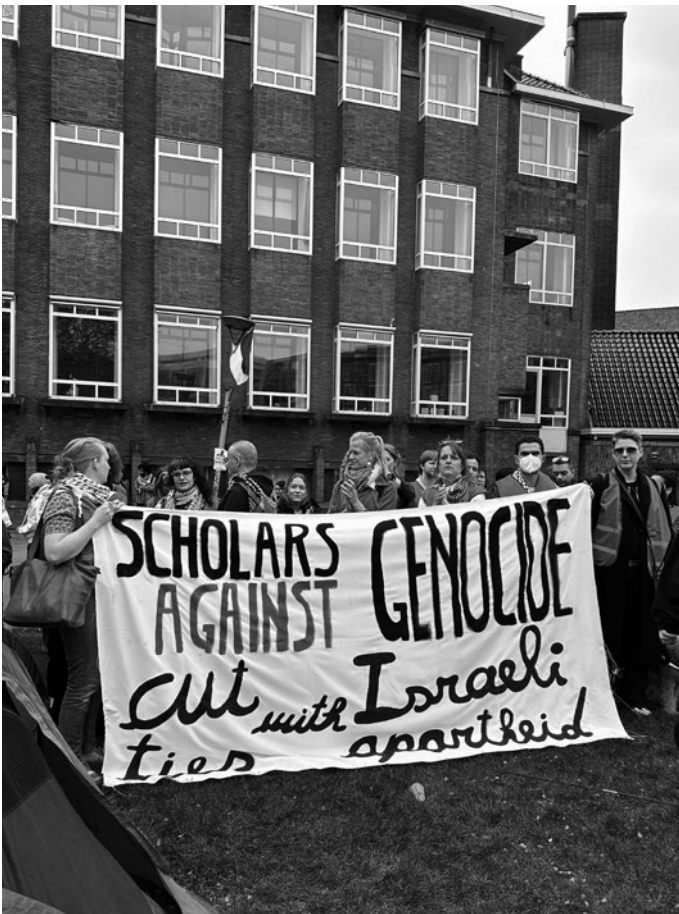 SCHOLARS
AGAINST
GENOCIDE
cut ties
with Israeli
apartheid